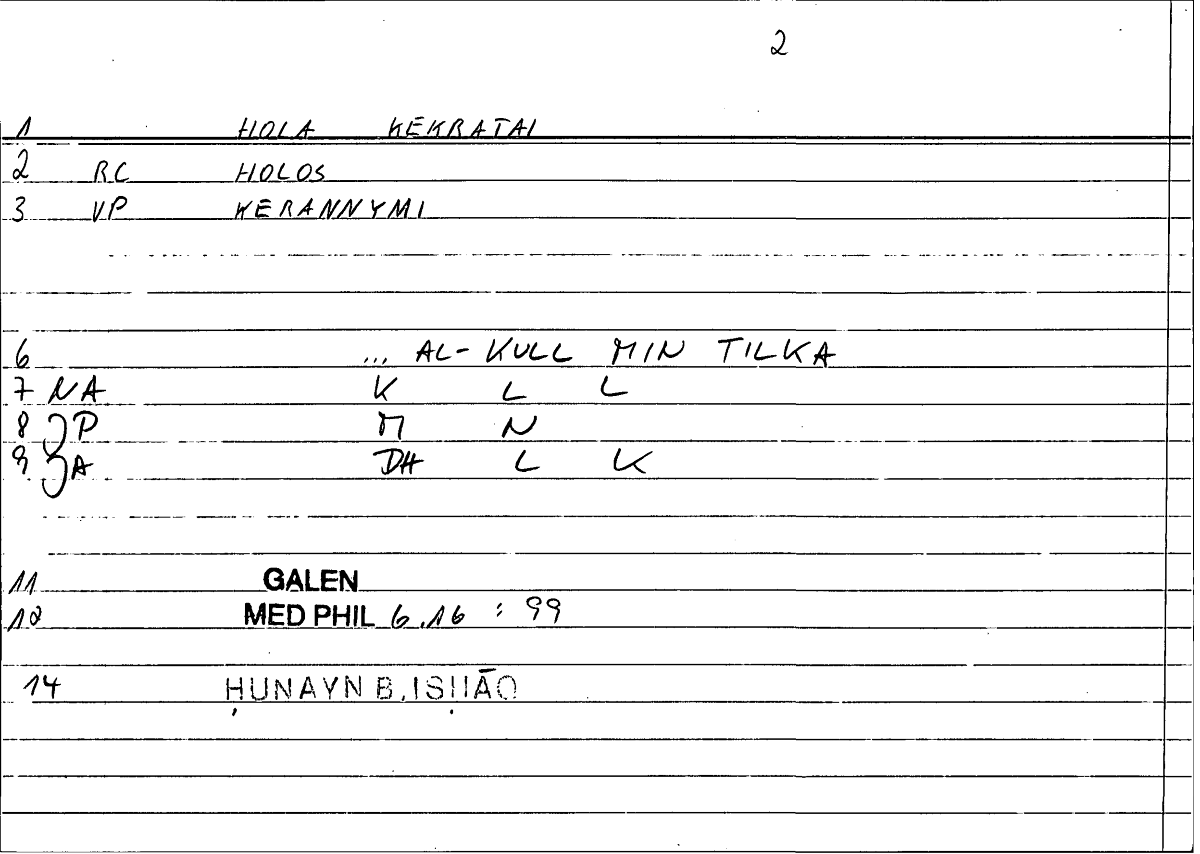 2
1 HOLA KEKRATAI
2 RC HOLOS
3 VP KERANNYMI
6 ... AL-KULL MIN TILKA
7 NA K L L
8 JP M N
9 JA DH L K
11 GALEN
12 MED PHIL 6.16 : 99
14 ḤUNAYN B. ISḤĀQ